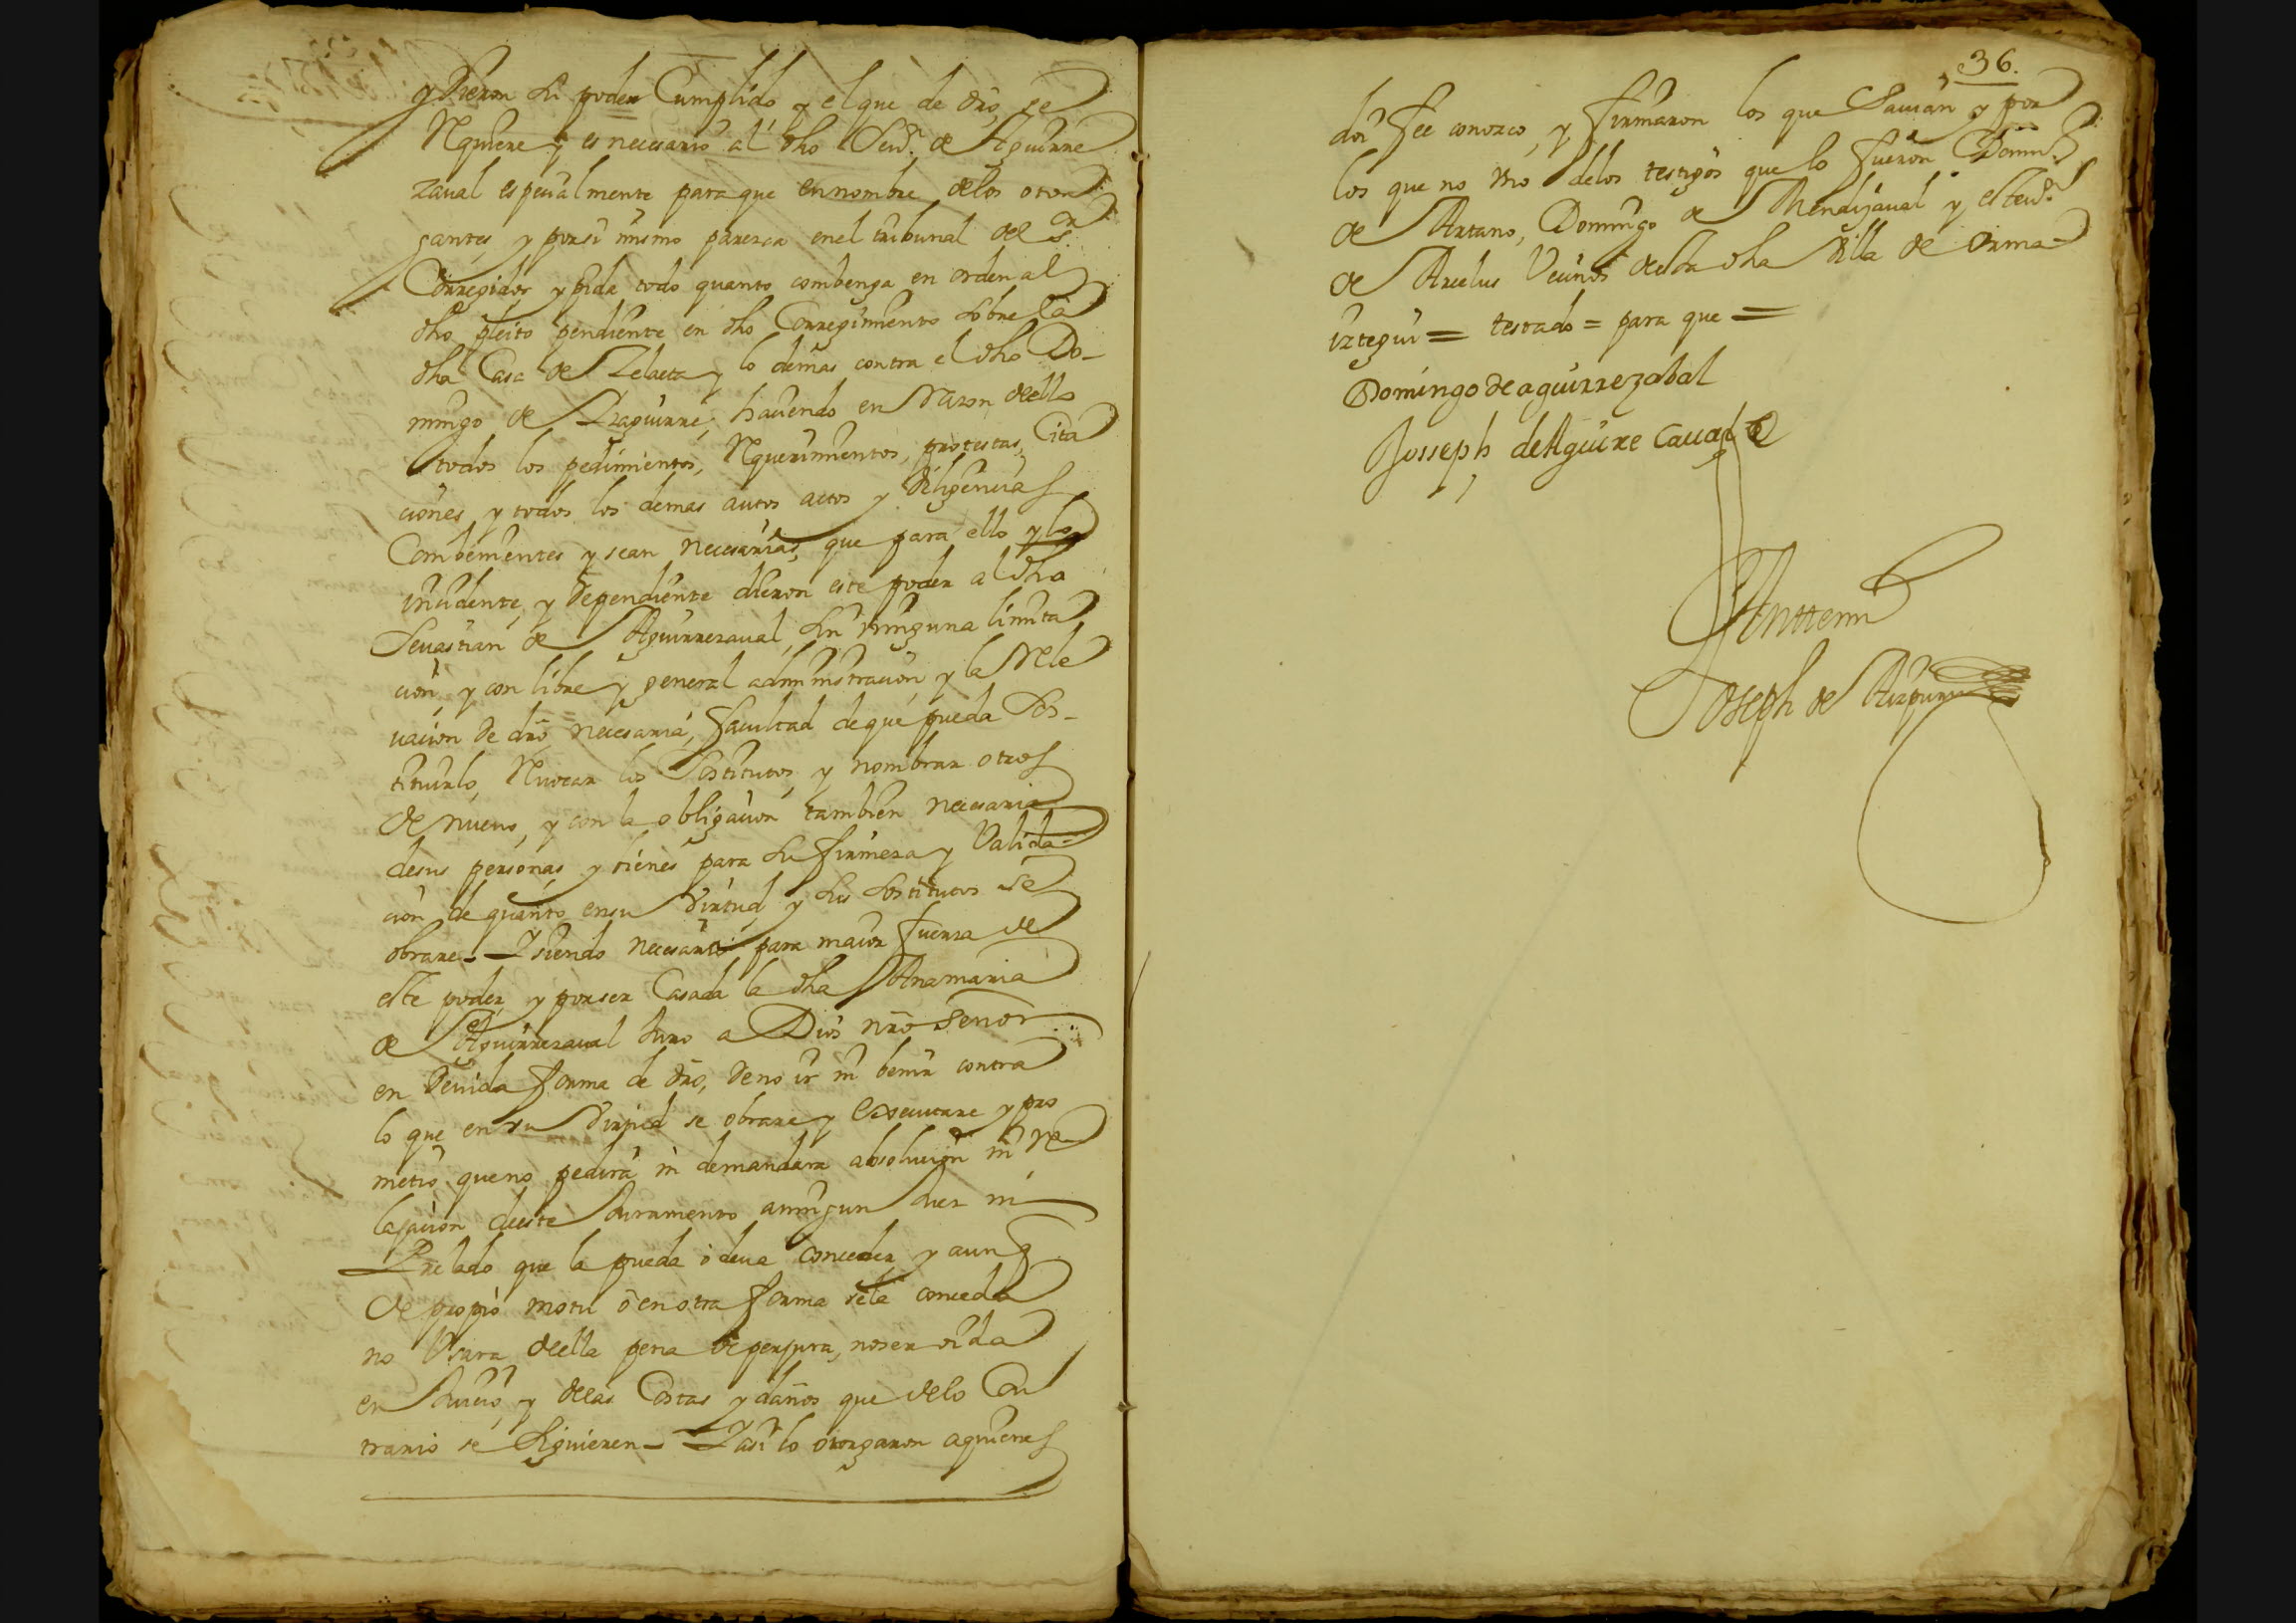 y dieron su poder Cumplido y el que de dro se
Requiere y es necesario al dho Sevn. de Aguirre
zaval especialmente para que en nombre de los otor
gantes y por si mismo parezca en el tribunal del Sr.
Corregidor y pida todo quanto combenga en orden al
dho pleito pendiente en dho Corregimiento sobre la
dha Casa de Zelaeta y lo demas contra el dho Do-
mingo de Yzaguirre, haciendo en razon dello
todos los pedimientos, Requerimientos, protestas, Cita
ciones y todos los demas autos actos y diligencias
Combenientes y sean necesarias, que para ello y lo
incidente, y dependiente dieron este poder al dho
Sevastian de Aguirrezaval, sin ninguna limita
cion, y con libre y general administracion, y la Rele
vacion de dro necesaria, facultad de que pueda Sos-
tituirlo, Revocar los Sostitutos, y nombrar otros
de nuevo, y con la obligacion tambien necesaria
de sus personas y vienes para su firmeza y Valida-
cion de quanto en su virtud y sus sostitutos se
obrare - Y siendo necesario para maior fuerza de
este poder, y por ser Casada la dha Ana maria
de Aguirrezaval Juro a Dios nro señor
en devida forma de dro, de no ir ni benir contra
lo que en su virtud se obrare y executare y pro
metio que no pedira ni demandara absolucion ni re
lajacion deeste Juramento a ningun Juez ni
Prelado que la pueda o deva conceder, y aunq
de propio motu o en otra forma se la conceda
no Usara della pena de perjura, no ser oida
en Juicio y de las Costas y daños que de lo Con
trario se siguieren - Y asi lo otorgaron a quienes
36.
doi fee conozco, y firmaron los que savian y por
los que no Uno de los testigos que lo fueron Domin.
de Artano, Domingo de Mendizaval y estevn
de Arcelus Vecinos de esta dha Villa de Orma-
iztegui = testado = para que =
Domingo de aguirrezabal
Josseph de Aguirre Caual
Antte mi
Joseph de Aizpuru